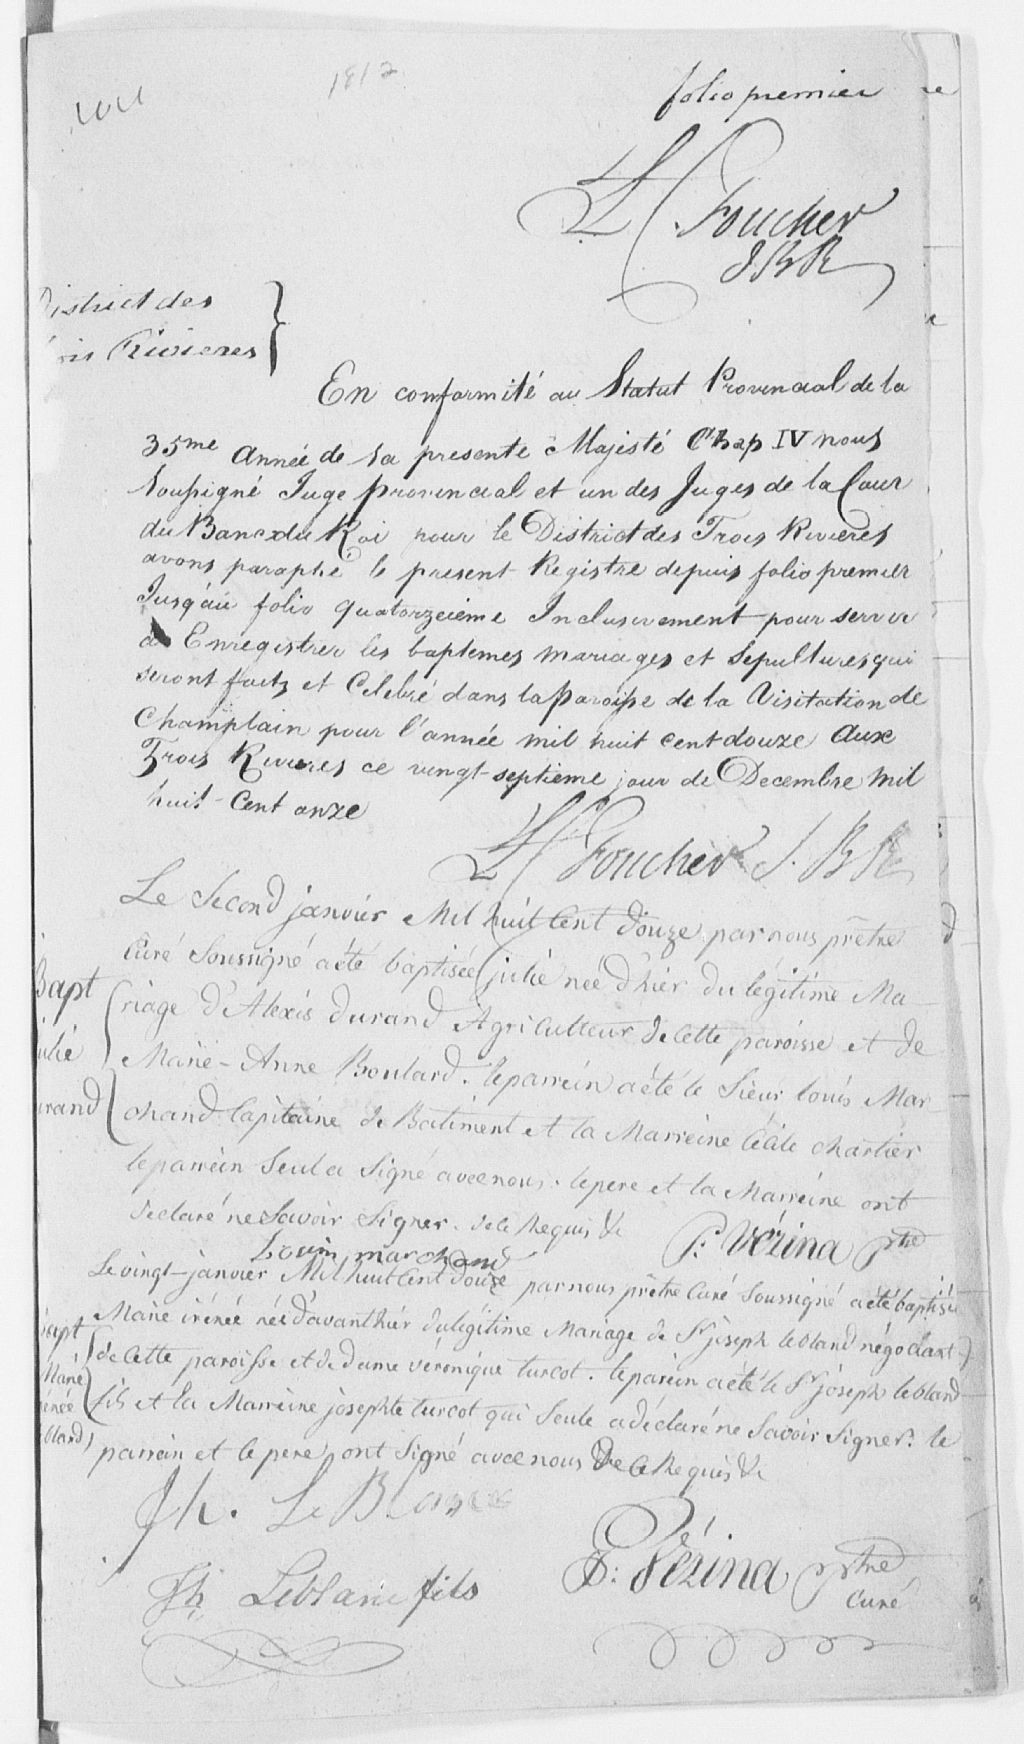 1812
folio premier
L C Foucher
J.B.R
District des
Trois Rivieres
En conformité au Statut Provincial de la
35me Année de sa presente Majesté Chap IV nous
Soussigné Juge provincial et un des Juges de la Cour
du Banc du Roi pour le District des Trois Rivieres
avons paraphé le present Registre depuis folio premier
Jusqu'au folio quatorzeieme Inclusivement pour servir
à Enregistrer les baptemes mariages et Sepultures qui
seront faits et Celebré dans la paroisse de la Visitation de
Champlain pour l'année mil huit cent douze Aux
Trois Rivieres ce vingt-septieme jour de Decembre Mil
huit Cent onze
L C Foucher J. B R
Le Second janvier Mil huit Cent douze par nous prêtre
Curé Soussigné a été baptisée julie née d'hier du legitime Ma-
riage d'Alexis Durand Agriculteur de Cette paroisse et de
Marie-Anne Boulard. le parrein a été le Sieur louis Mar-
chand Capitaine de Batiment et la Marreine Cécile Chartier
le parrein Seul a Signé avec nous. le pere et la Marreine ont
declaré ne Savoir Signer. de ce Requis &c
Bapt
julie
Durand
P: Vézina ptre
Louis marchand
Le vingt janvier Mil huit Cent douze par nous prêtre Curé Soussigné a été baptisée
Marie irénée née d'avant hier du legitime Mariage de Sr joseph lebland négociant
de Cette paroisse et de dame véronique turcot. le parein a été le Sr joseph lebland
fils et la Marreine josephte turcot qui Seule a déclaré ne Savoir Signer. le
parrain et le pere ont Signé avec nous de ce Requis &c
Bapt
Marie
irénée
lebland
Jh. Le Blanc
Jh Leblanc fils
P: Vézina ptre
Curé